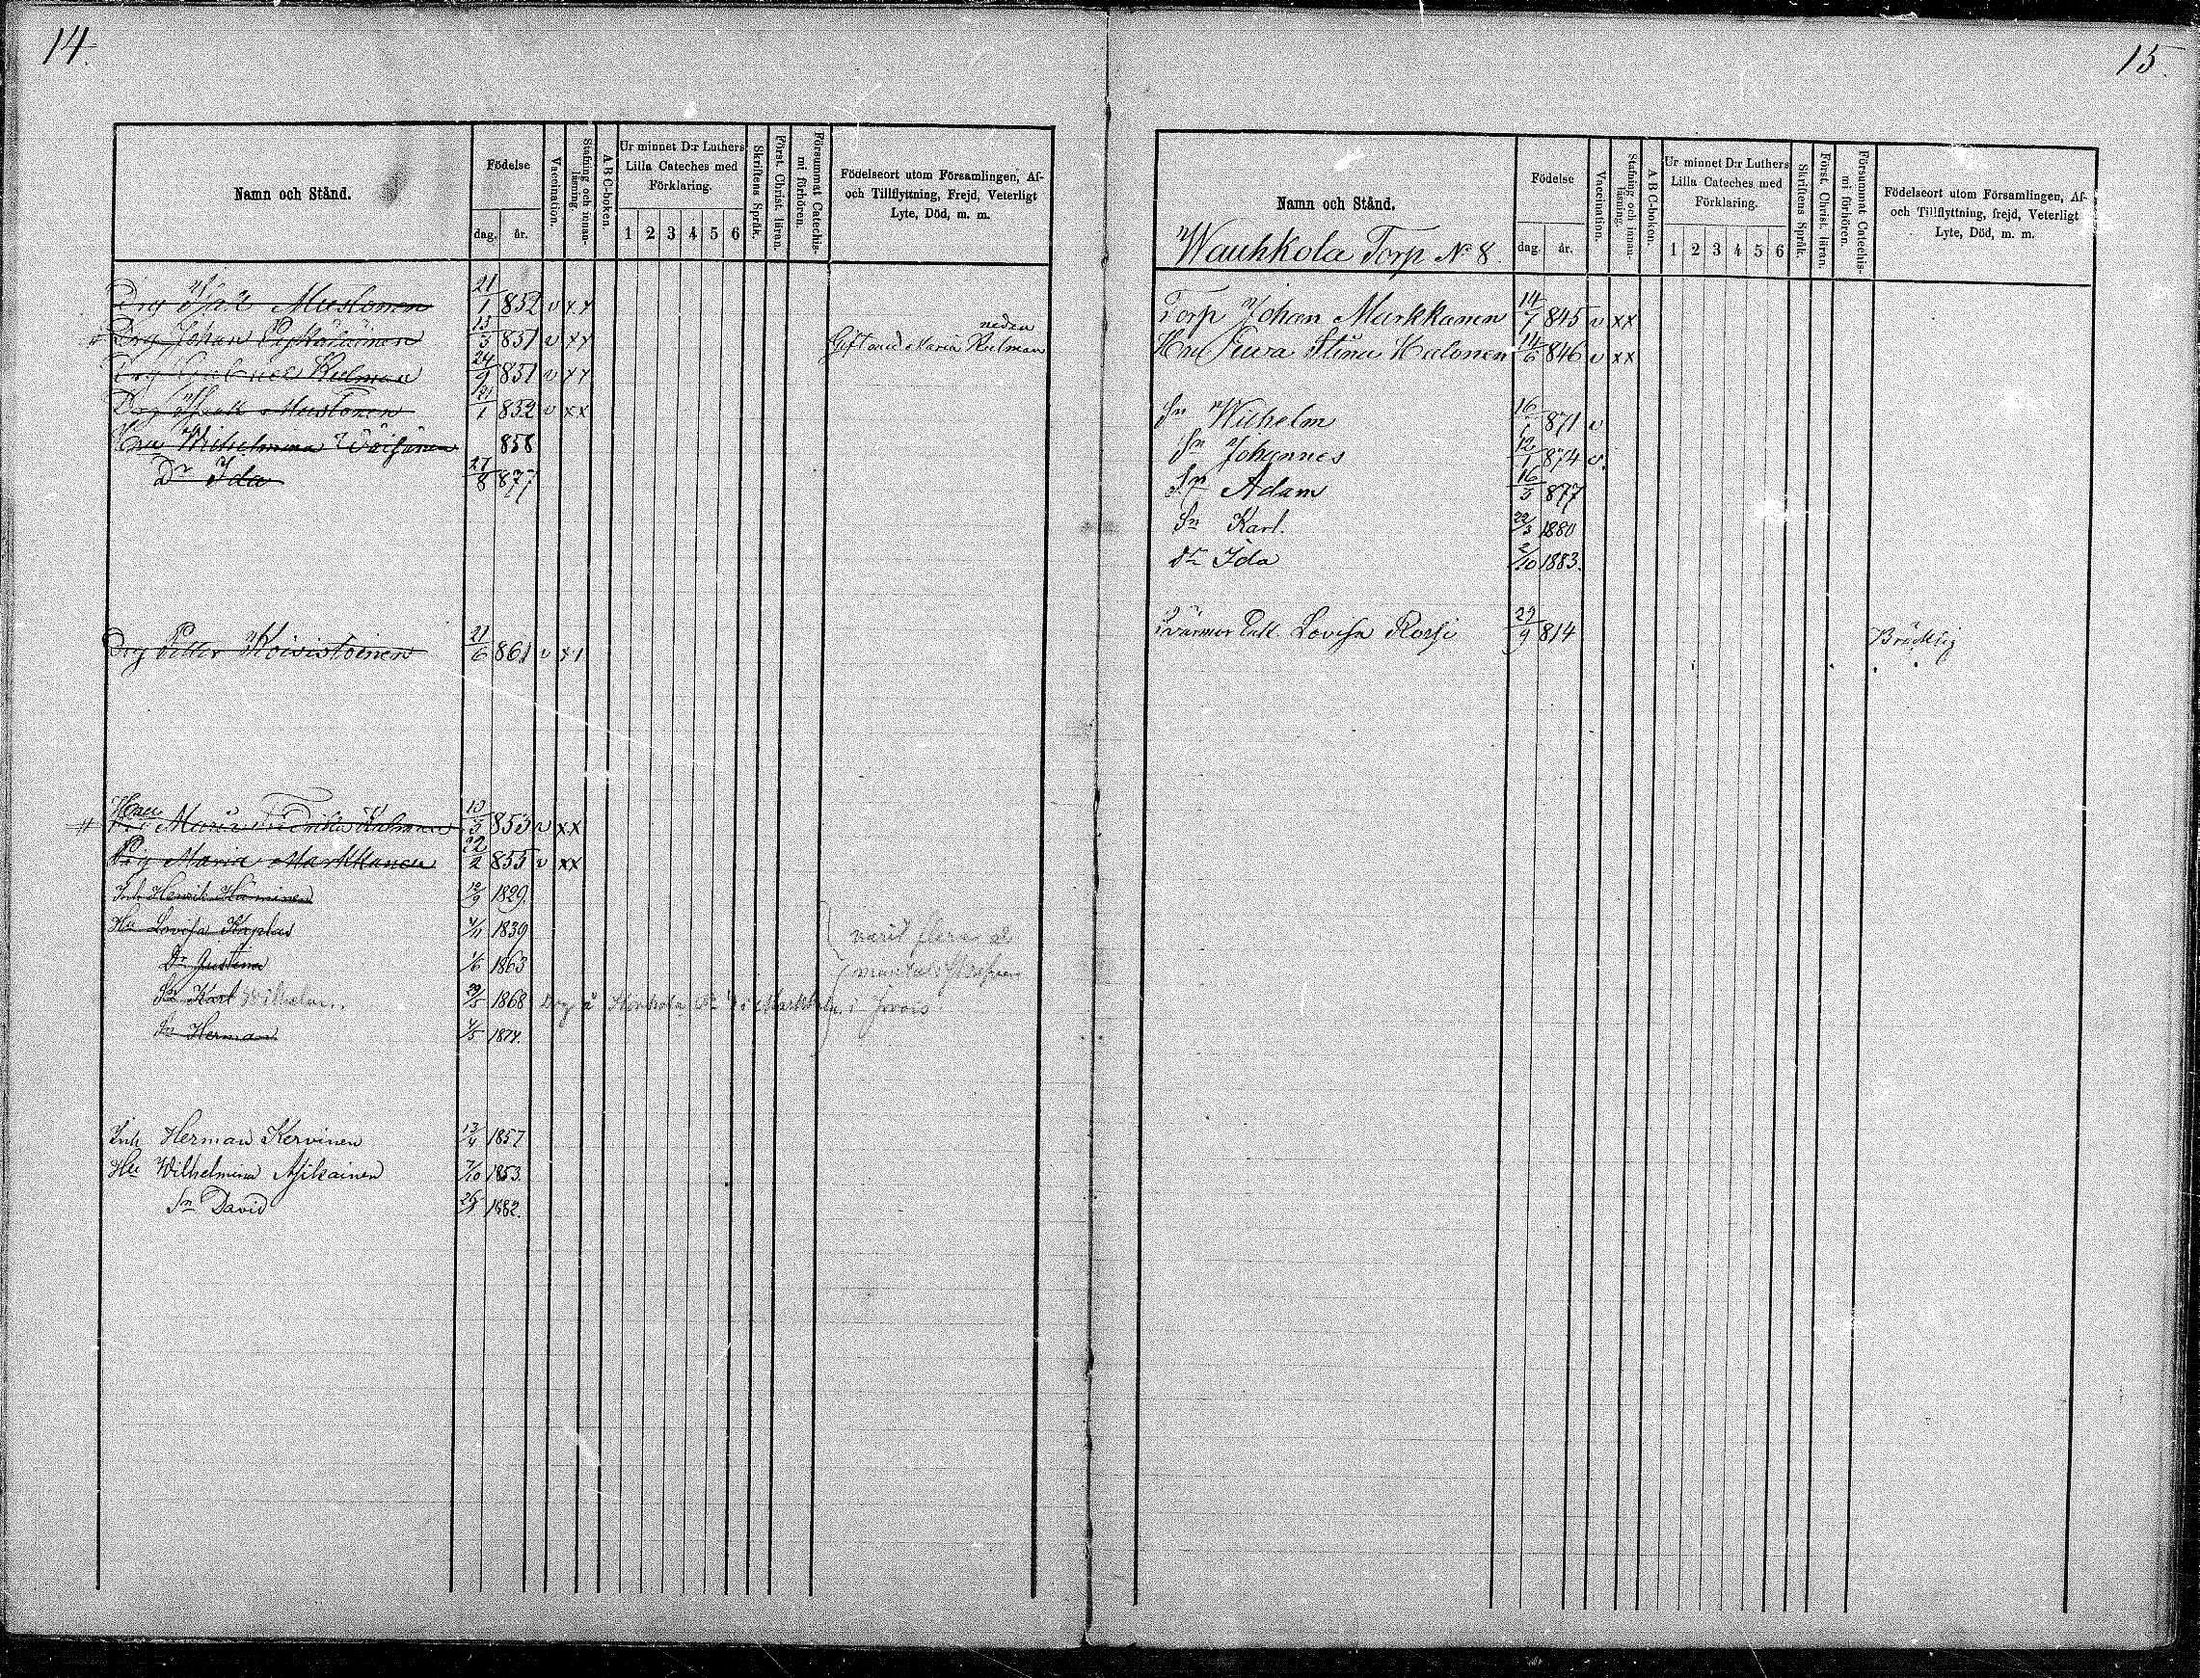 14.
Namn och Stånd.
Födelse
dag. år.
Vaccination.
Stafning och innan-läsning.
A B C-boken.
Ur minnet D:r Luthers
Lilla Cateches med
Förklaring.
1 2 3 4 5 6
Skriftens Språk.
Först. Christ. läran.
Försummat Catechis-mi förhören.
Födelseort utom Församlingen, Af-
och Tillflyttning, Frejd, Veterligt
Lyte, Död, m. m.
Drg Mustonen 21/1 852 v xx
Drg Johan 13/3 851 v xx Gift med Maria Kulman nedan
Drg Kulman 24/9 851 v xx
Drg Mustonen 21/1 852 v xx
Hnu Wilhelmina Väisänen 858
Dr Ida 27/8 877
Drg Petter Koivistoinen 21/6 861 v x1
Hnu Maria Fredrika Kulman 10/3 853 v xx
Pig Maria Markkanen 22/2 855 v xx
Inh Henrik Häminen 12/9 1829.
Hu Lovisa Kaplas 4/11 1839
Dr Gustava 1/6 1863
Sn Karl Wilhelm. 29/5 1868 Drg å i Jorois
Sn Herman 4/5 1874.
varit flera
Inh Herman Kervinen 13/4 1857
Hu Wilhelmina Asikainen 7/10 1853.
Sn David 1882.
15.
Namn och Stånd.
Wauhkola Torp No 8.
Födelse
dag. år.
Vaccination.
Stafning och innan-läsning.
A B C-boken.
Ur minnet D:r Luthers
Lilla Cateches med
Förklaring.
1 2 3 4 5 6
Skriftens Språk.
Först. Christ. läran.
Försummat Catechis-mi förhören.
Födelseort utom Församlingen, Af-
och Tillflyttning, frejd, Veterligt
Lyte, Död, m. m.
Torp Johan Markkanen 14/7 845 v xx
Hnu Eewa Stina Halonen 14/6 846 v xx
Sn Wilhelm 16 871 v
Sn Johannes 12/1 874 v.
Sn Adam 16/5 877
Sn Karl. 22/3 1880
dr Ida 2/10 1883.
Svärmor Enk. Lovisa Rossi 29/9 814 Bräcklig